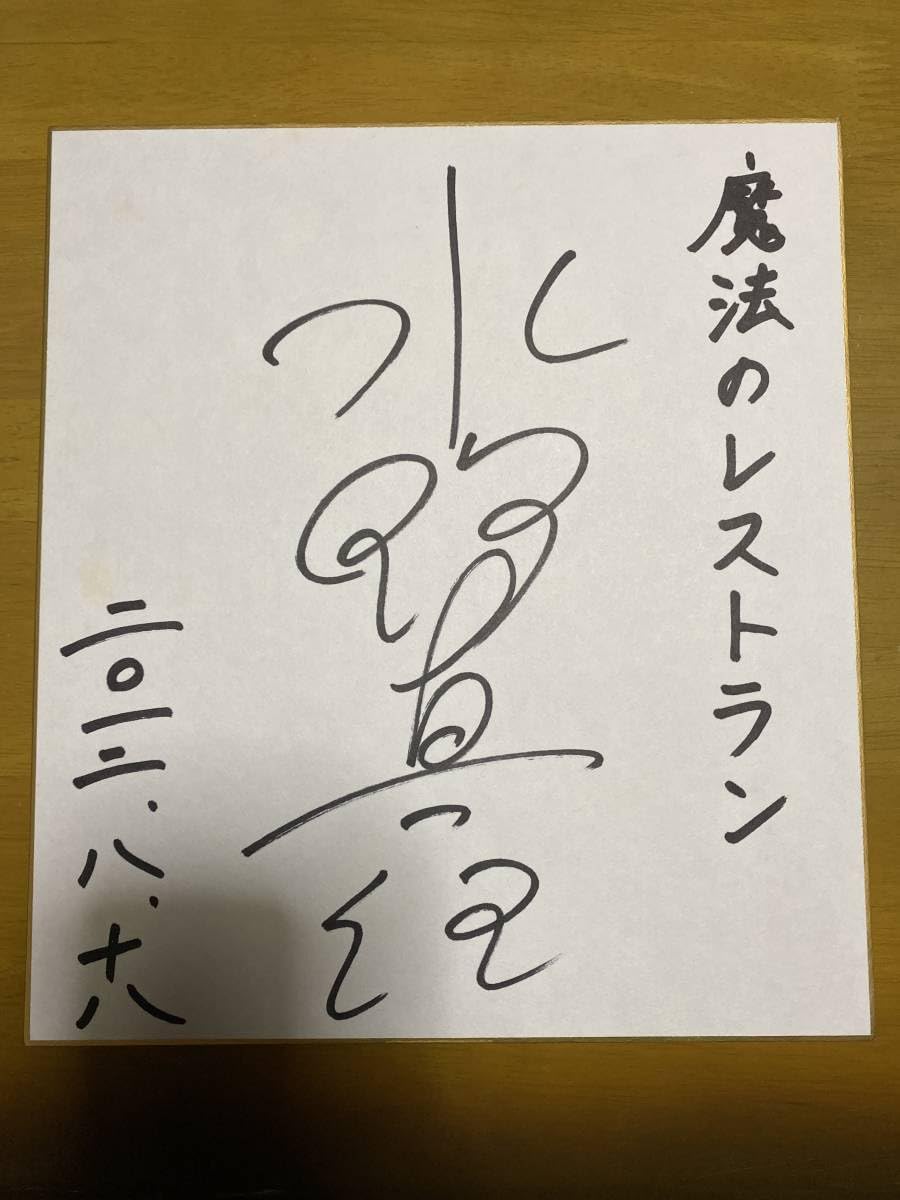 魔法のレストラン
水野真紀
二〇一二、八、十八